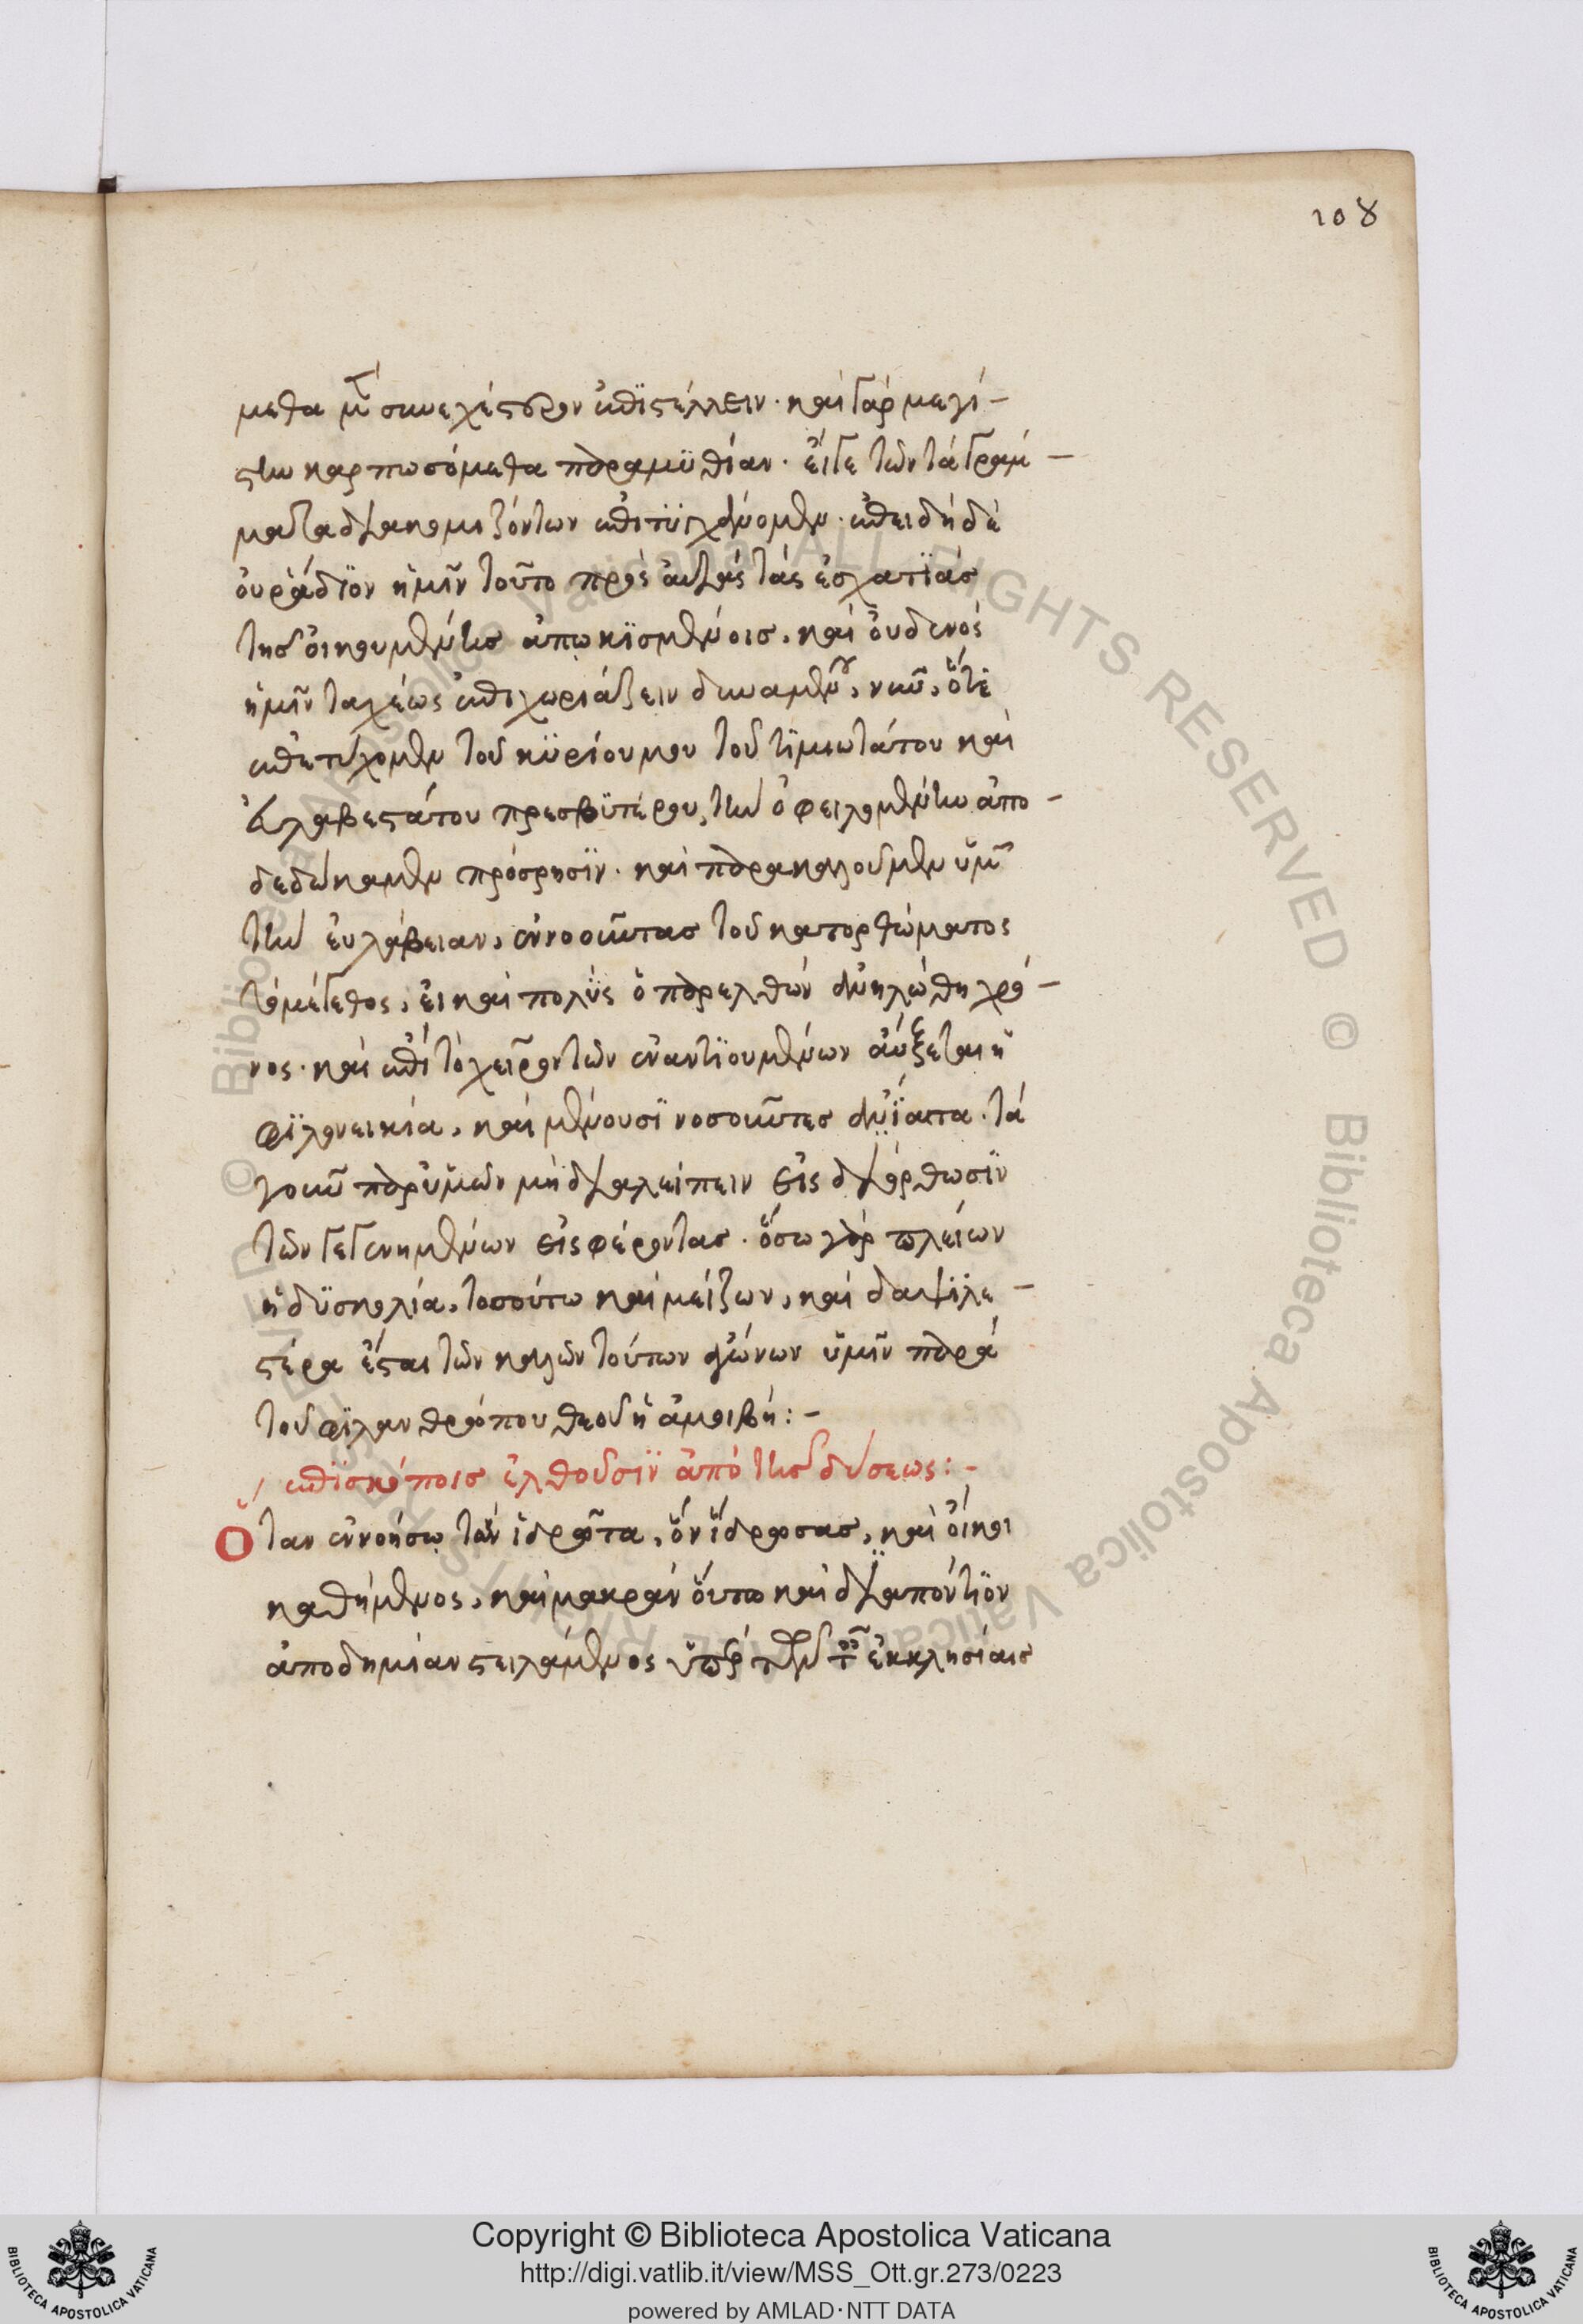 108
μεθα μὲν συνεχέστερον ἐπιστέλλειν· καὶ γὰρ μεγί-
στην καρπωσόμεθα παραμυθίαν· εἴγε τῶν τὰ γράμ-
ματα διακομιζόντων ἐπιτυγχάνομεν· ἐπειδὴ δὲ
οὐ ῥάδιον ἡμῖν τοῦτο πρὸς αὐτὰς τὰς ἐσχατιὰς
τῆς οἰκουμένης ἀπῳκισμένοις, καὶ οὐδενὸς
ἡμῖν ταχέως ἐπιχωριάζειν δυναμένου, νῦν, ὅτε
ἐπετύχομεν τοῦ κυρίου μου τοῦ τιμιωτάτου καὶ
εὐλαβεστάτου πρεσβυτέρου, τὴν ὀφειλομένην ἀπο-
δεδώκαμεν πρόσρησιν· καὶ παρακαλοῦμεν ὑμῶν
τὴν εὐλάβειαν, ἐννοοῦντας τοῦ κατορθώματος
τὸ μέγεθος, εἰ καὶ πολὺς ὁ παρελθὼν ἀνηλώθη χρό-
νος· καὶ ἐπὶ τὸ χεῖρον τῶν ἐναντιουμένων αὔξεται ἡ
φιλονεικία, καὶ μένουσι νοσοῦντες ἀνίατα· τὰ
γοῦν παρ' ὑμῶν μὴ διαλείπειν εἰς διόρθωσιν
τῶν γεγενημένων εἰσφέροντας· ὅσω γὰρ πλείων
ἡ δυσκολία, τοσούτω καὶ μείζων, καὶ δαψιλε-
στέρα ἔσται τῶν καλῶν τούτων ἀγώνων ὑμῖν παρὰ
τοῦ φιλανθρώπου θεοῦ ἡ ἀμοιβή:-
ἐπισκόποις ἐλθοῦσιν ἀπὸ τῆς δύσεως:-
Ὅταν ἐννοήσω τὸν ἱδρῶτα, ὃν ἵδρωσας, καὶ οἴκοι
καθήμενος, καὶ μακρὰν οὕτω καὶ διαπόντιον
ἀποδημίαν στειλάμενος ὑπὲρ τῶν ἐκκλησίαις
Copyright © Biblioteca Apostolica Vaticana
http://digi.vatlib.it/view/MSS_Ott.gr.273/0223
powered by AMLAD·NTT DATA